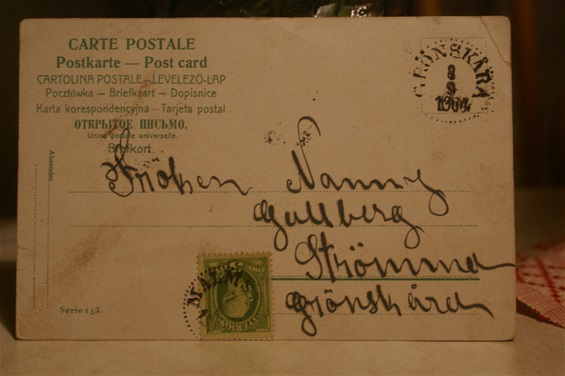 CARTE POSTALE
Postkarte — Post card
CARTOLINA POSTALE — LEVELEZÖ-LAP
Pocztówka — Briefkaart — Dopisnice
Karta korespondencyjna — Tarjeta postal
ОТКРЫТОЕ ПИСЬМО.
Union postale universelle.
Brefkort.
GRÖNSKÅRA
8
9
Absender.
Fröken Nanny
Gullberg
Strömma
Grönskåra
Serie 152.